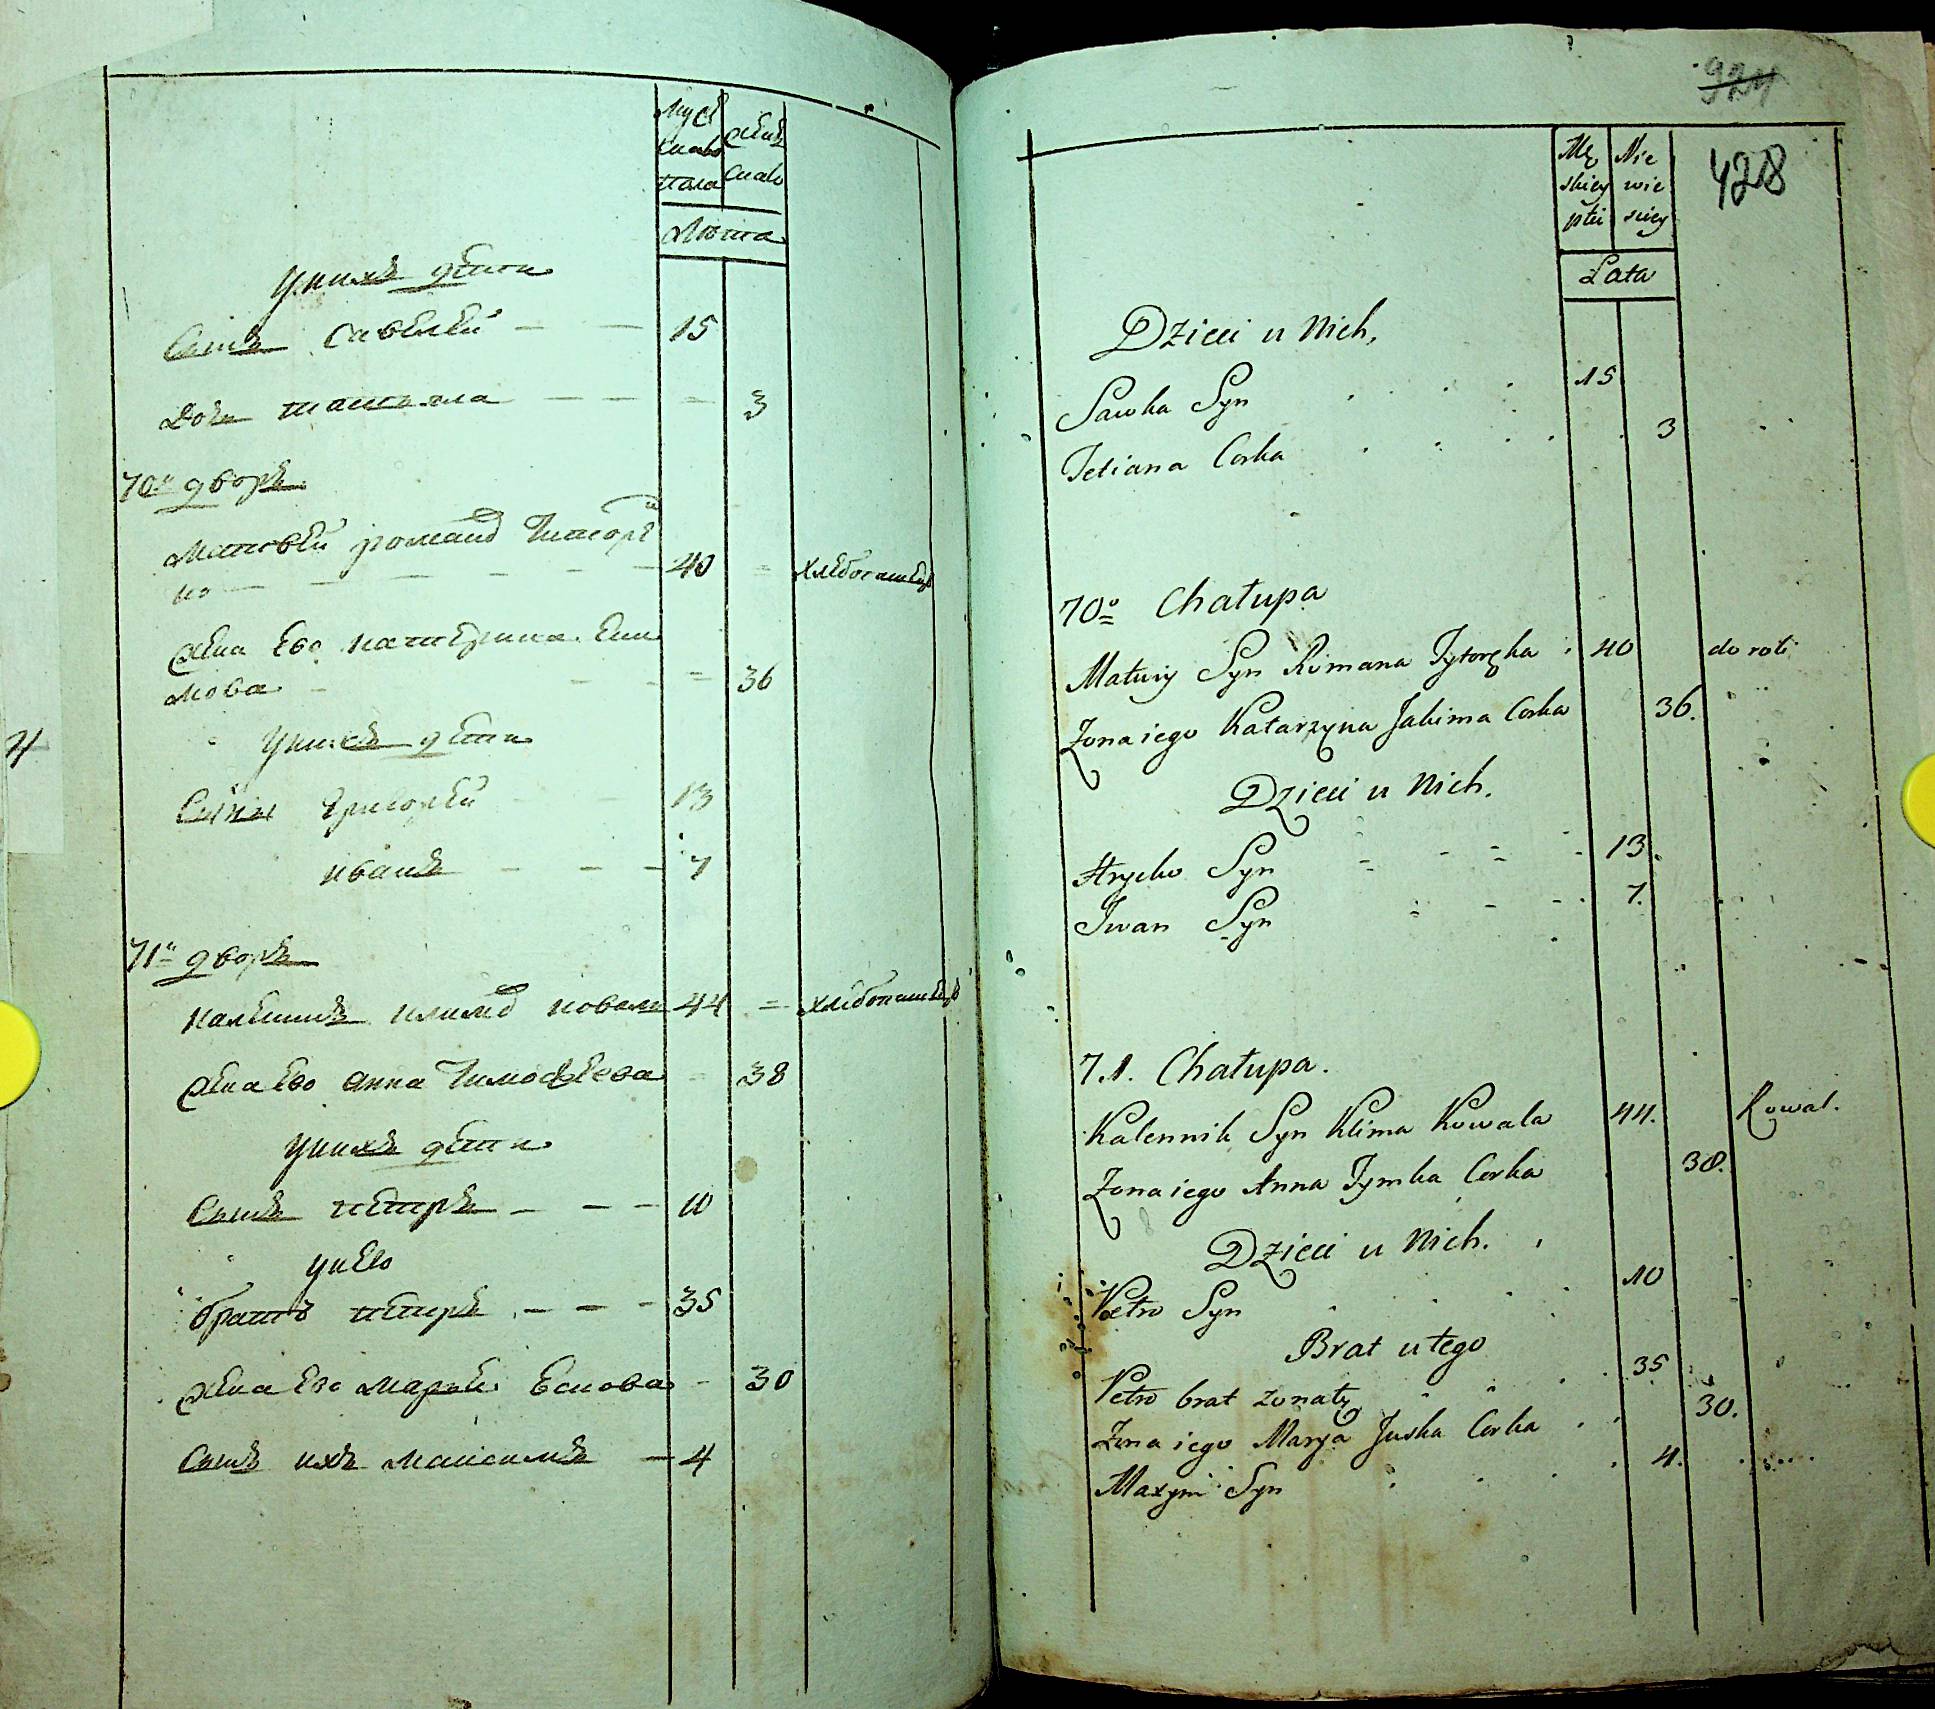 Муж
скаго
пола
Жен
скаго
Лѣта
У нихъ дѣти
Сынъ Савелей 15
Дочь татьяна 3
70й дворъ
матвей романъ Титорѣ
но 40 хлебопашецъ
жена Ево катерина Еки
мова 36
У нихъ дѣти
Сыны Григорей 13
иванъ 7
71й дворъ
каленикъ климъ коваль 44 хлебопашецъ
жена Ево анна Тимофеева 38
У нихъ дѣти
Сынъ петръ 10
У нево
братъ петръ 35
жена Ево марья Ескова 30
Сынъ ихъ максимъ 4
924
428
Mę
skiey
płci
Nie
wie
sciey
Lata
Dzieci u Nich,
Sawka Syn 15
Tetiana Corka 3
70o Chałupa
Matwiy Syn Romana Tytoręka 40 do roli
Zona iego Katarzyna Jakima Corka 36.
Dzieci u Nich.
Hryćko Syn 13.
Iwan Syn 7.
71. Chałupa.
Kalennik Syn Klima Kowala 44. Kowal.
Zona iego Anna Tymka Corka 38.
Dzieci u Nich.
Petro Syn 10
Brat u tego
Petro brat zonaty 35
Zona iego Marya Juska Corka 30.
Maxym Syn 4.